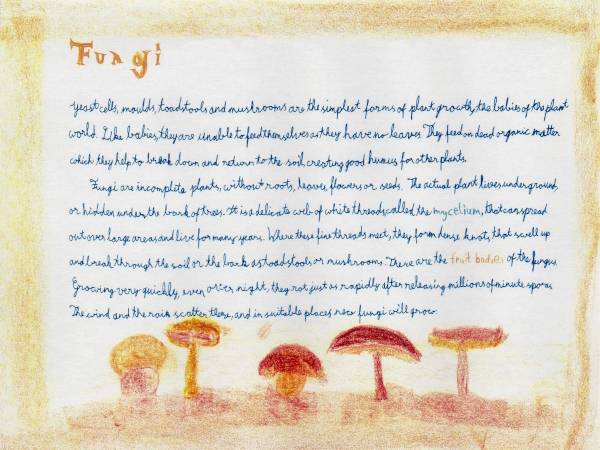 Fungi
yeast cells, moulds, toadstools and mushrooms are the simplest forms of plant growth, the babies of the plant
world. Like babies, they are unable to feed themselves as they have no leaves. They feed on dead organic matter
which they help to break down and return to the soil, creating good humus for other plants.
Fungi are incomplete plants, without roots, leaves, flowers or seeds. The actual plant lives underground,
or hidden under the bark of trees. It is a delicate web of white threads called the mycelium, that can spread
out over large areas and live for many years. Where these fine threads meet, they form dense knots, that swell up
and break through the soil or the bark as toadstools or mushrooms. These are the fruit bodies of the fungus.
Growing very quickly, even over night, they rot just as rapidly after releasing millions of minute spores.
The wind and the rain scatter these, and in suitable places new fungi will grow.